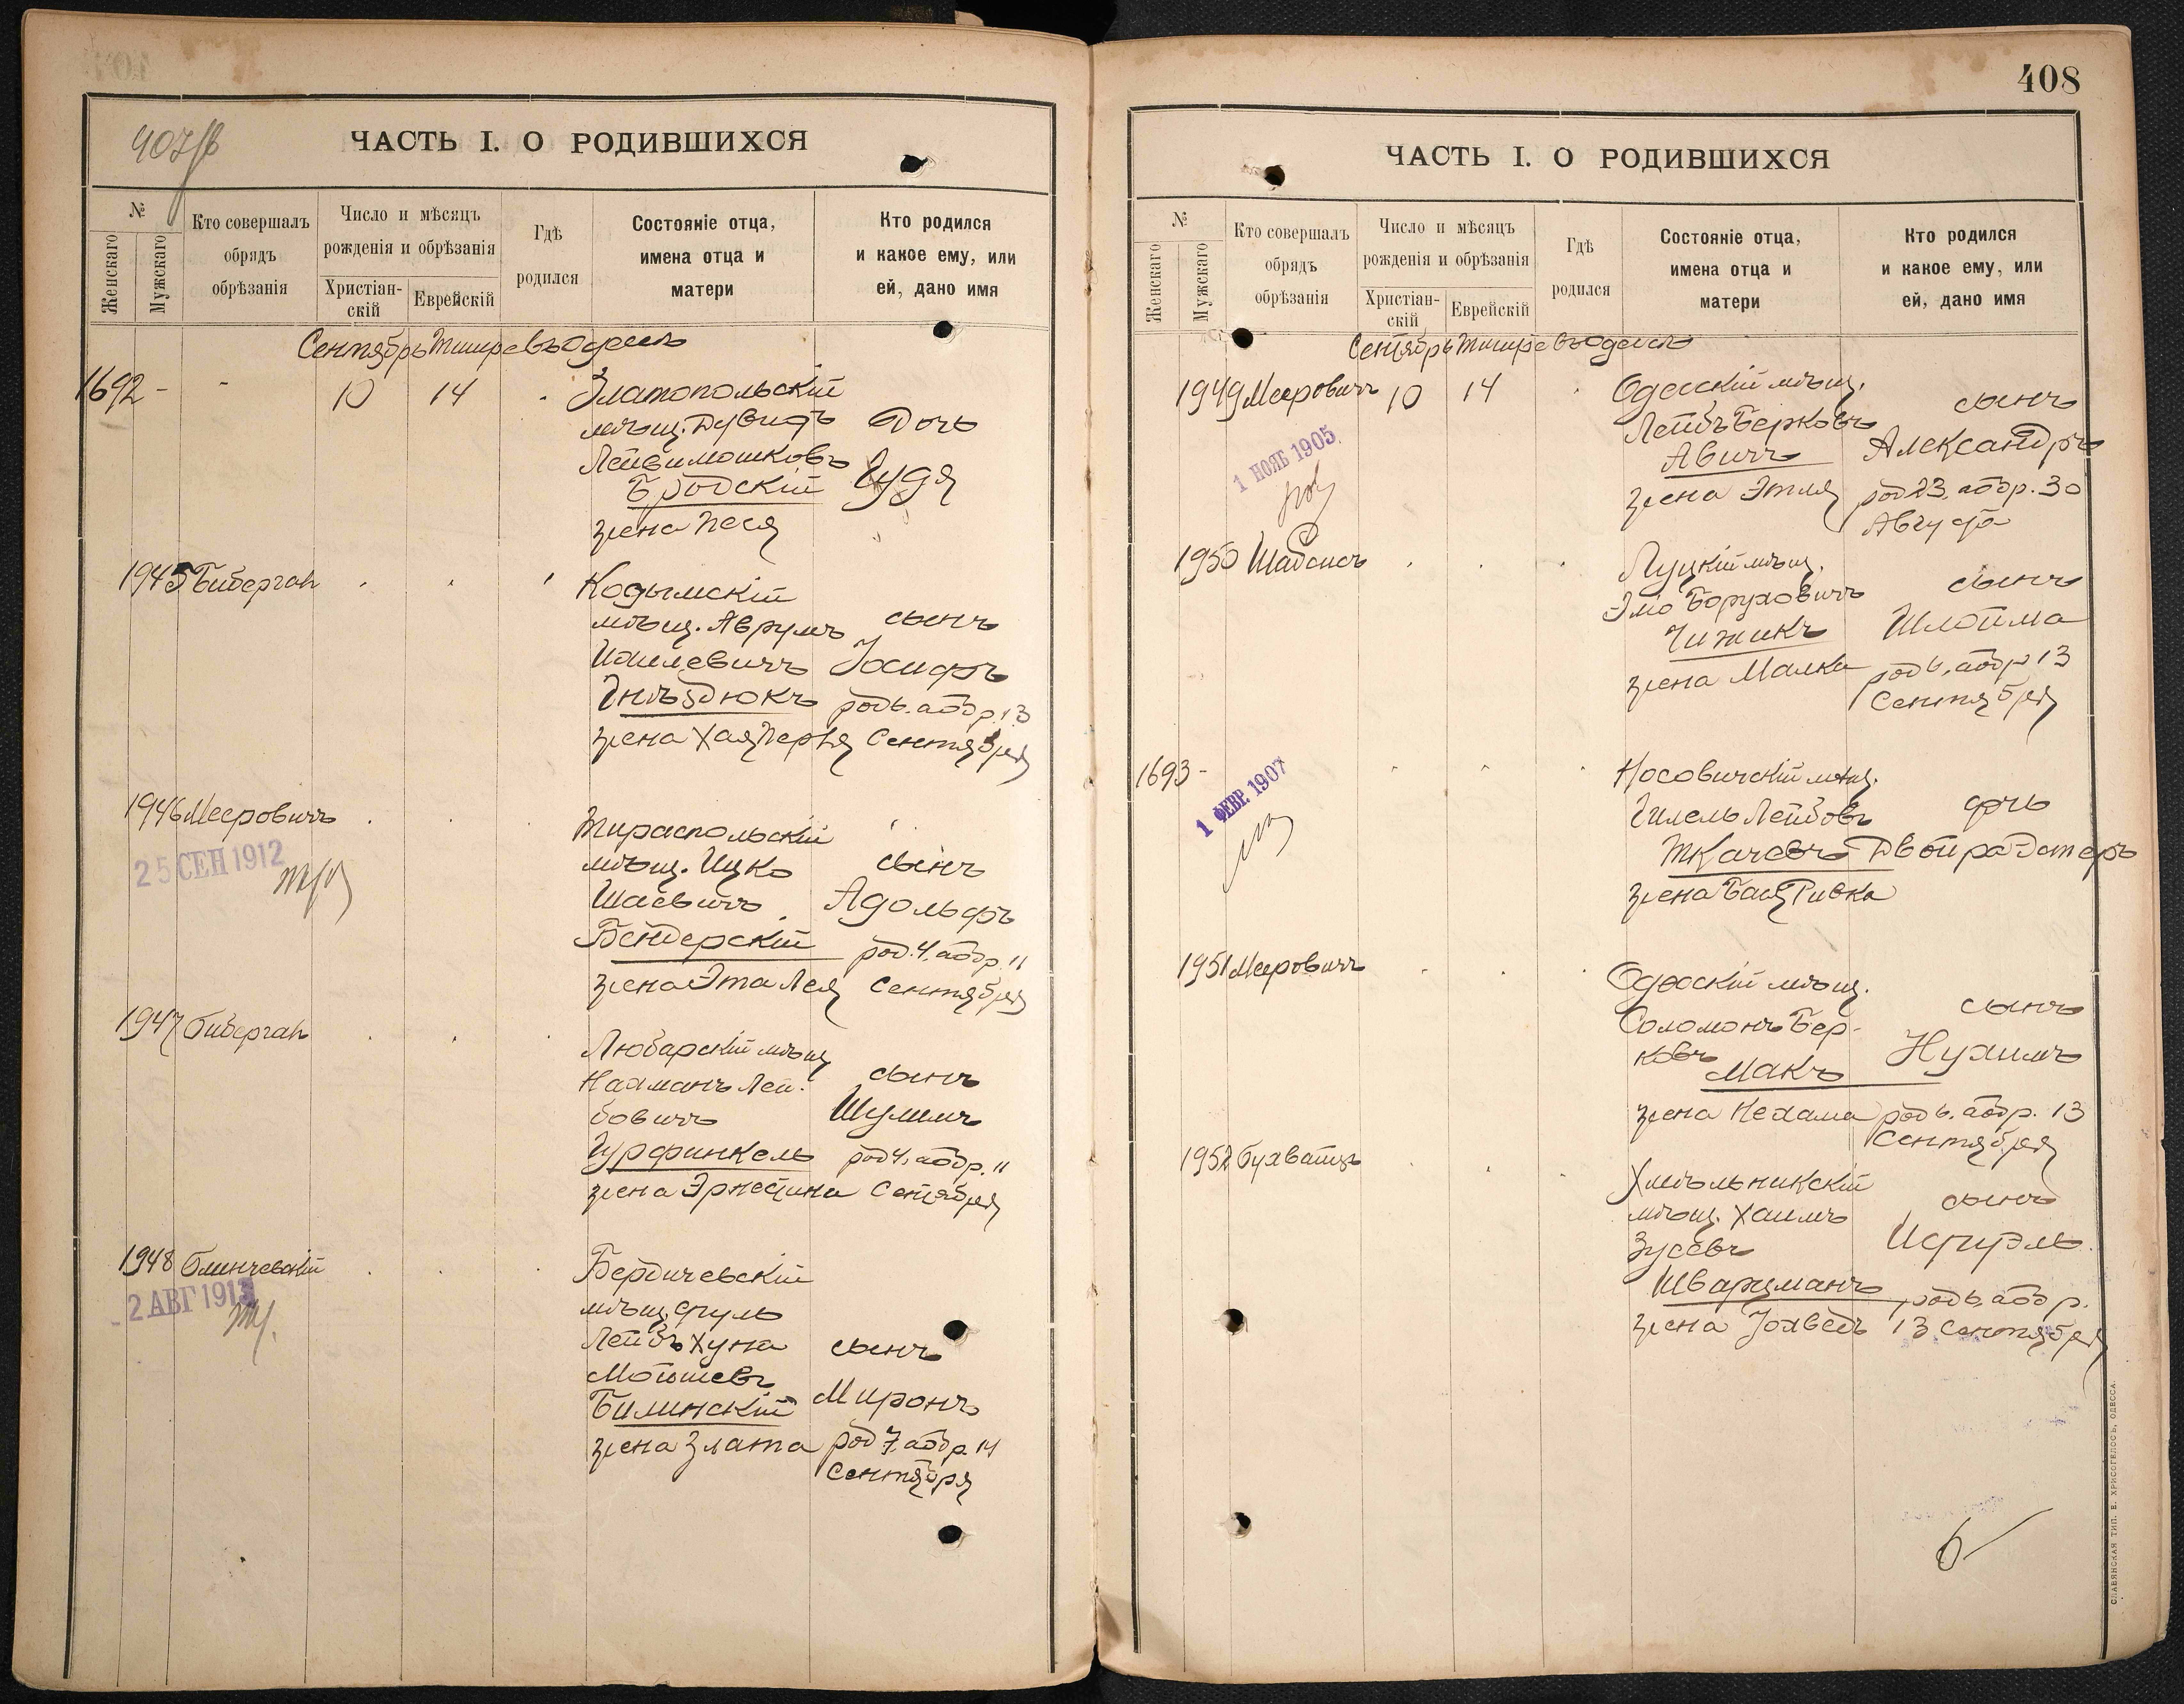 407/б
ЧАСТЬ I. О РОДИВШИХСЯ
№
Женскаго
Мужскаго
Кто совершалъ
обрядъ
обрѣзанія
Число и мѣсяцъ
рожденія и обрѣзанія
Христіан-
скій
Еврейскій
Гдѣ
родился
Состояніе отца,
имена отца и
матери
Кто родился
и какое ему, или
ей, дано имя
Сентябрь Тишре въ Одессѣ
1692 - - 10 14
Златопольскій
мѣщ. Дувидъ
Лейвимошковъ
Бродскій
жена Песя
Дочь
Гудя
1945 Биберган
Кодымскій
мѣщ. Аврумъ
Ицилевичъ
Гнѣздюкъ
жена Хая Перля
сынъ
Іосифъ
род 6. аобр. 13
Сентября
1946 Мееровичъ
25 СЕН 1912
Тираспольскій
мѣщ. Ицко
Шаевичъ
Бендерскій
жена Эта Лея
сынъ
Адольфъ
род. 4. аобр. 11
Сентября
1947 Биберган
Любарскій мѣщ
Нахманъ Лей-
бовичъ
Гурфинкель
жена Эрнестина
сынъ
Шулимъ
род 4, аобр. 11
Сентября
1948 Блинчевскій
2 АВГ 1913
Бердичевскій
мѣщ. Сруль
Лейбъ Хуна
Мойшевъ
Билинскій
жена Злата
сынъ
Миронъ
род 7, аобр. 14
Сентября
408
ЧАСТЬ I. О РОДИВШИХСЯ
№
Женскаго
Мужскаго
Кто совершалъ
обрядъ
обрѣзанія
Число и мѣсяцъ
рожденія и обрѣзанія
Христіан-
скій
Еврейскій
Гдѣ
родился
Состояніе отца,
имена отца и
матери
Кто родился
и какое ему, или
ей, дано имя
Сентябрь Тишре въ Одессѣ
1949 Мееровичъ 10 14
1 НОЯБ 1905
Одесскій мѣщ.
Лейбъ Берковъ
Авичъ
жена Этля
сынъ
Александръ
род 23, аобр. 30
Августа
1950 Шабсисъ
Луцкій мѣщ.
Эліо Боруховичъ
Чижикъ
жена Малка
сынъ
Шлойма
род 6, аобр 13
Сентября
1693 -
1 ФЕВР. 1907
Носовичскій мѣщ.
Гилель Лейбовъ
Ткачевъ
жена Бася Ривка
дочь
Двойра Эстеръ
1951 Мееровичъ
Одесскій мѣщ.
Соломонъ Бер-
ковъ
Макъ
жена Нехама
сынъ
Нухимъ
род 6. аобр. 13
Сентября
1952 Бухвайцъ
Хмѣльникскій
мѣщ. Хаимъ
Зусевъ
Шварцманъ
жена Іохведъ
сынъ
Исруэль
род 6, аобр.
13 Сентября
6
СЛАВЯНСКАЯ ТИП. Е. ХРИСОГЕЛОСЪ, ОДЕССА.